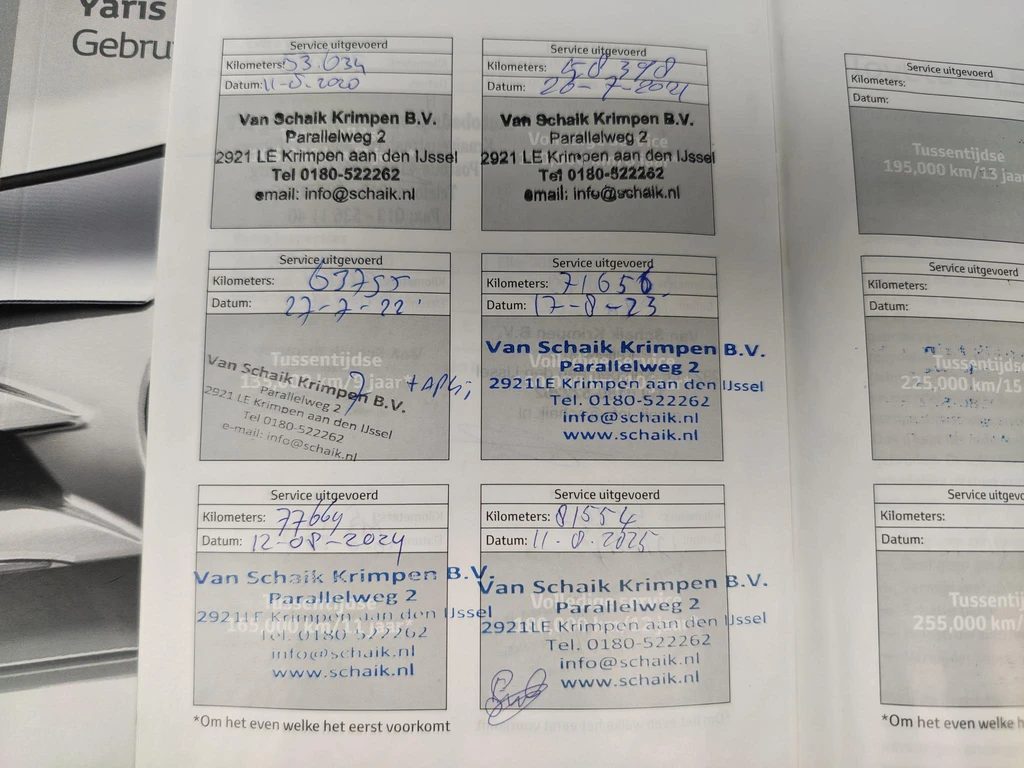 Yaris
Gebru
Service uitgevoerd
Kilometers: 53.034
Datum: 11-5-2020
Van Schaik Krimpen B.V.
Parallelweg 2
2921 LE Krimpen aan den IJssel
Tel 0180-522262
email: info@schaik.nl
Service uitgevoerd
Kilometers: 58398
Datum: 26-7-2021
Van Schaik Krimpen B.V.
Parallelweg 2
2921 LE Krimpen aan den IJssel
Tel 0180-522262
email: info@schaik.nl
Service uitgevoerd
Kilometers: 63755
Datum: 27-7-22
Tussentijdse
135,000 km/9 jaar*
Van Schaik Krimpen B.V.
Parallelweg 2
2921 LE Krimpen aan den IJssel
Tel 0180-522262
e-mail: info@schaik.nl
Service uitgevoerd
Kilometers: 71656
Datum: 17-8-23
Volledige service
Van Schaik Krimpen B.V.
Parallelweg 2
2921LE Krimpen aan den IJssel
Tel. 0180-522262
info@schaik.nl
www.schaik.nl
Service uitgevoerd
Kilometers: 77664
Datum: 12-08-2024
Tussentijdse
165,000 km/11 jaar*
Van Schaik Krimpen B.V.
Parallelweg 2
2921LE Krimpen aan den IJssel
Tel. 0180-522262
info@schaik.nl
www.schaik.nl
Service uitgevoerd
Kilometers: 81554
Datum: 11-8-2025
Volledige service
Van Schaik Krimpen B.V.
Parallelweg 2
2921LE Krimpen aan den IJssel
Tel. 0180-522262
info@schaik.nl
www.schaik.nl
*Om het even welke het eerst voorkomt
Service uitgevoerd
Kilometers:
Datum:
Tussentijdse
195,000 km/13 jaa
Service uitgevoerd
Kilometers:
Datum:
Tussentijds
225,000 km/15
Service uitgevo
Kilometers:
Datum:
Tussentij
255,000 km/
*Om het even welke h